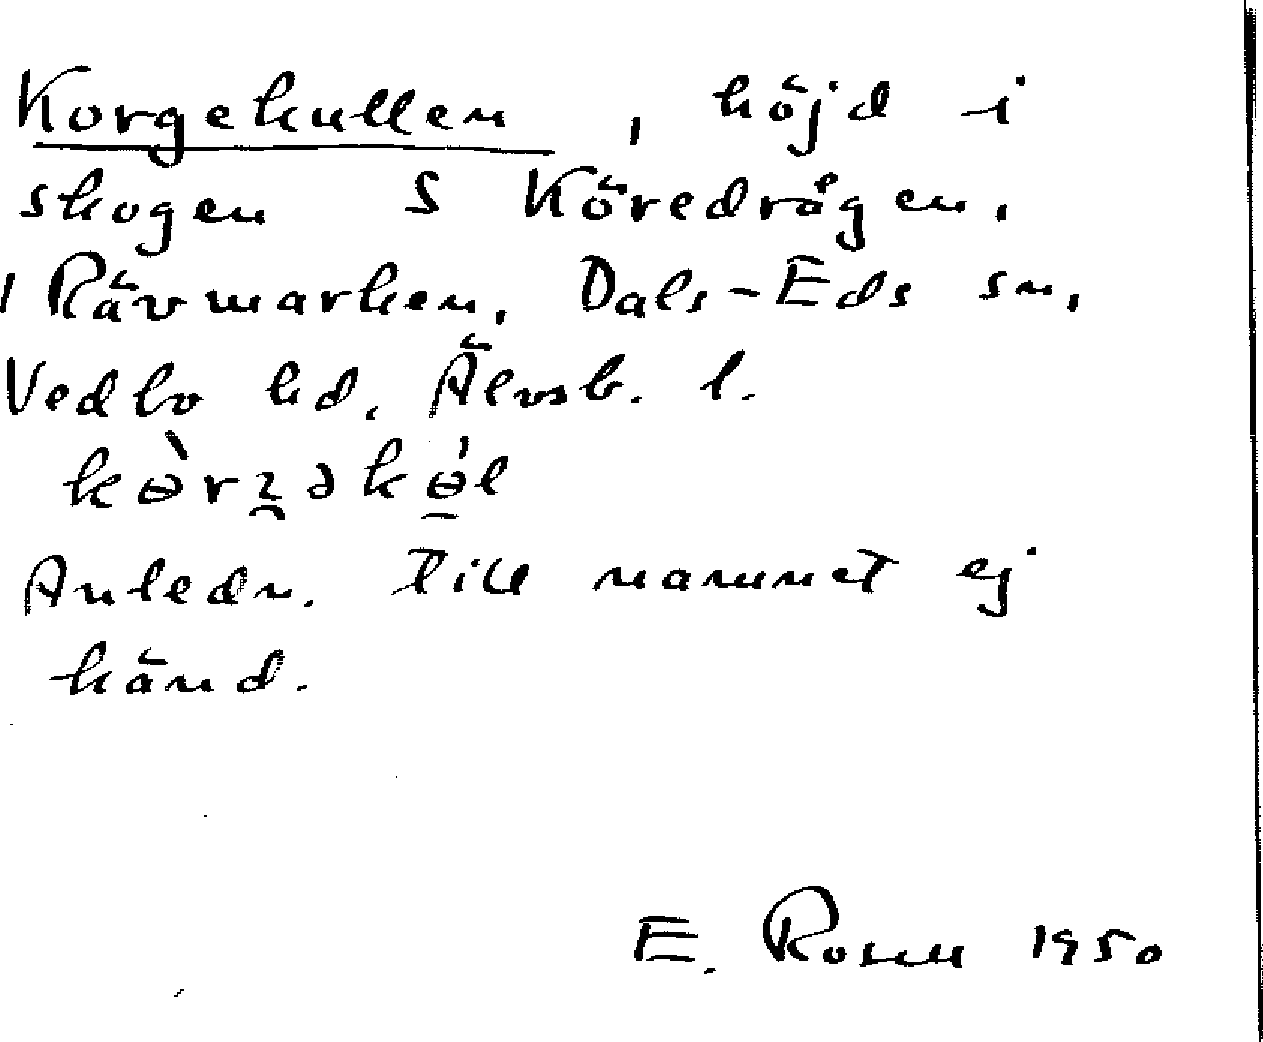 Korgekullen, höjd i
skogen S Köredrågen,
i Rävmarken, Dals-Eds sn,
Vedbo hd, Älvsb. l.
Anledn. till namnet ej
känd.
E. Rosell 1950